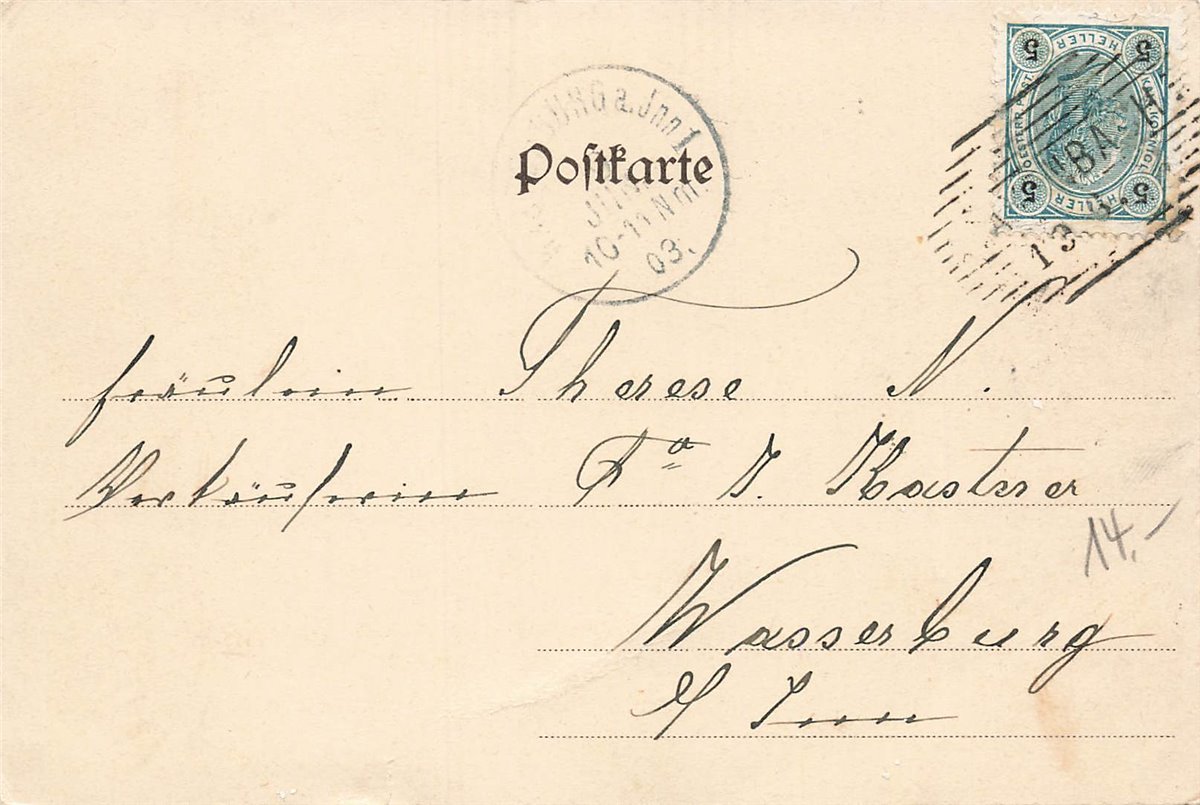 5 HELLER 5
5 HELLER 5
URG a. Inn I
Postkarte
10-11 Nm
03.
13
Fräulein Therese N.
Verkäuferin Fa J. Kastner
14.-
Wasserburg
a/ Inn